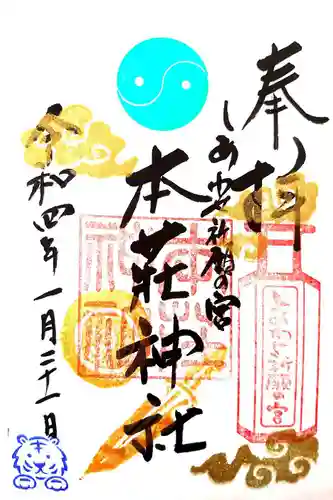 奉拝
しあわせ祈願の宮
本荘神社
令和四年一月二十一日
しあわせ祈願の宮